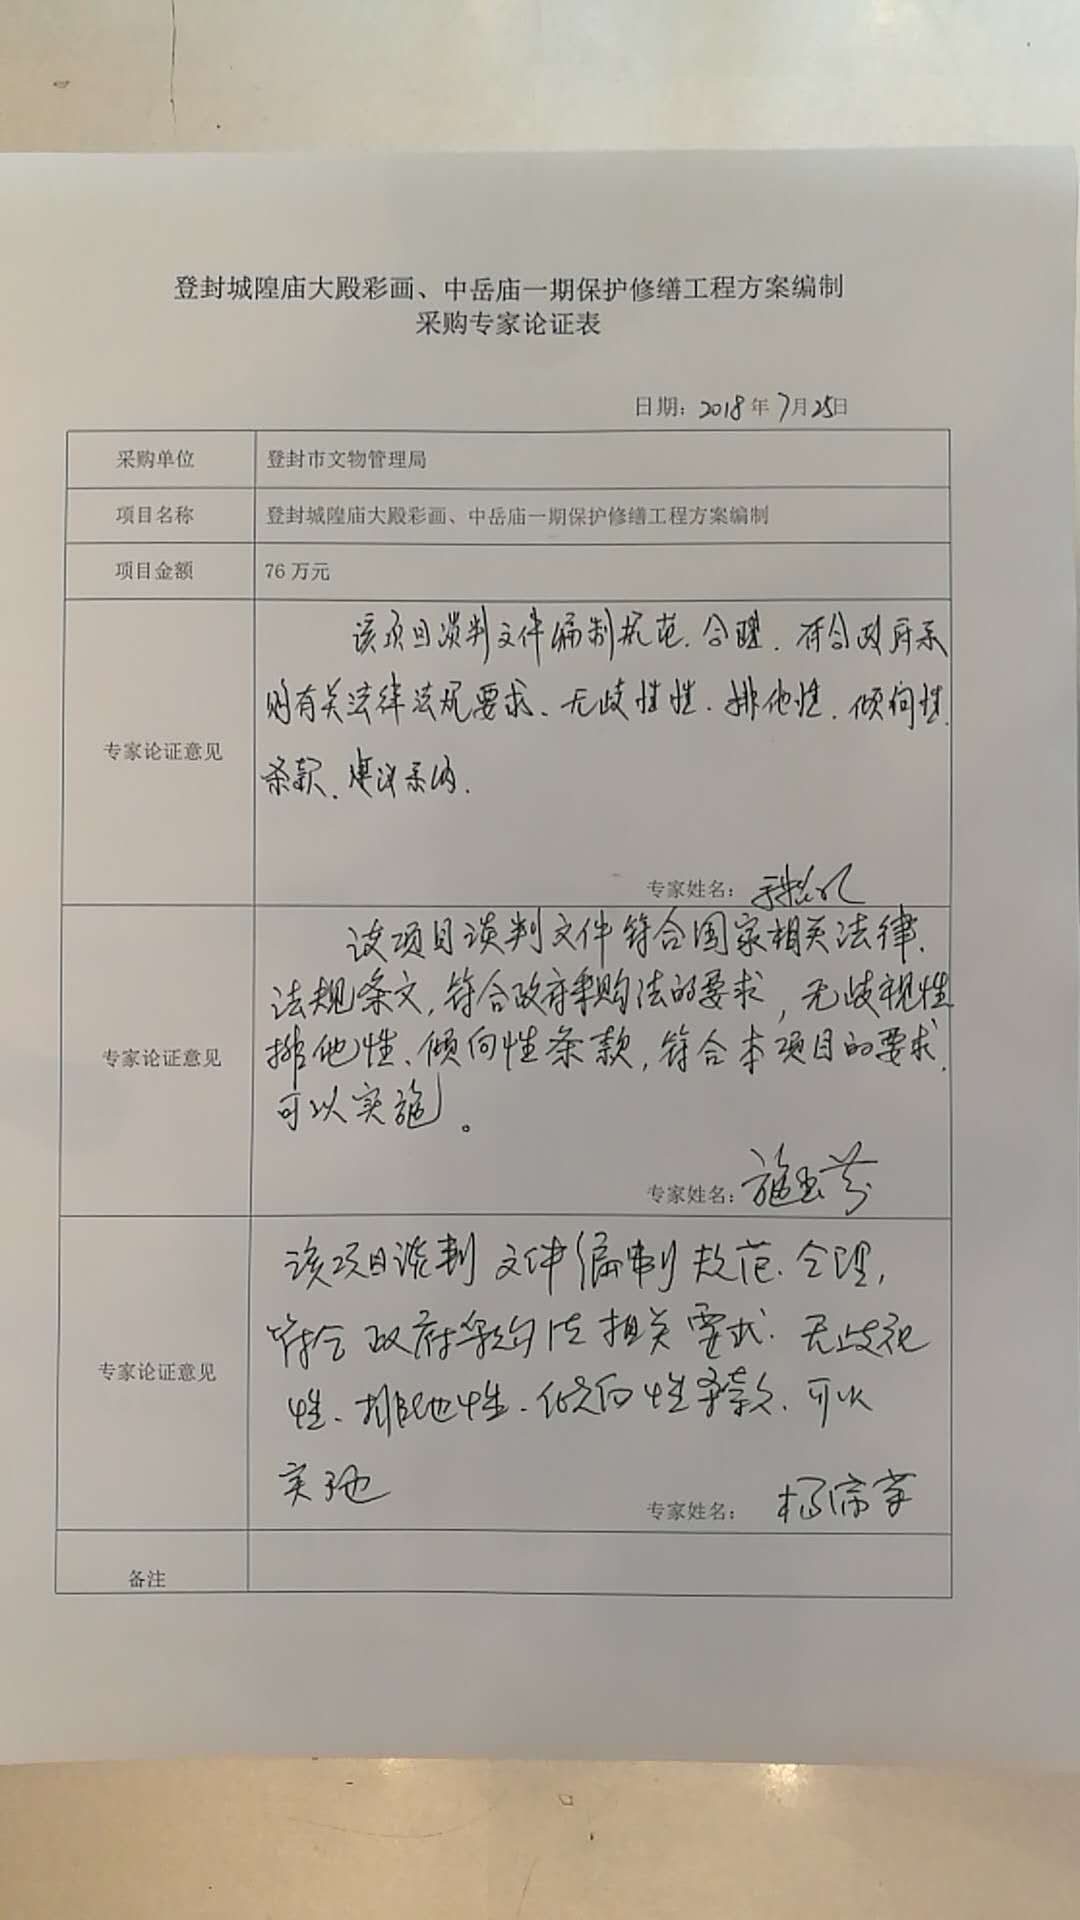 登封城隍庙大殿彩画、中岳庙一期保护修缮工程方案编制
采购专家论证表
日期：2018年7月25日
采购单位 登封市文物管理局
项目名称 登封城隍庙大殿彩画、中岳庙一期保护修缮工程方案编制
项目金额 76万元
该项目谈判文件编制规范、合理、符合政府采
购有关法律法规要求、无歧性性、排他性、倾向性
专家论证意见
条款、建议采纳.
专家姓名：
该项目谈判文件符合国家相关法律、
法规条文，符合政府采购法的要求，无歧视性
专家论证意见
排他性、倾向性条款，符合本项目的要求，
可以实施。
专家姓名：施玉芬
该项目谈判文件编制规范、合理，
符合政府采购法相关要求、无歧视
专家论证意见
性、排他性、倾向性条款、可以
实施
专家姓名：
备注